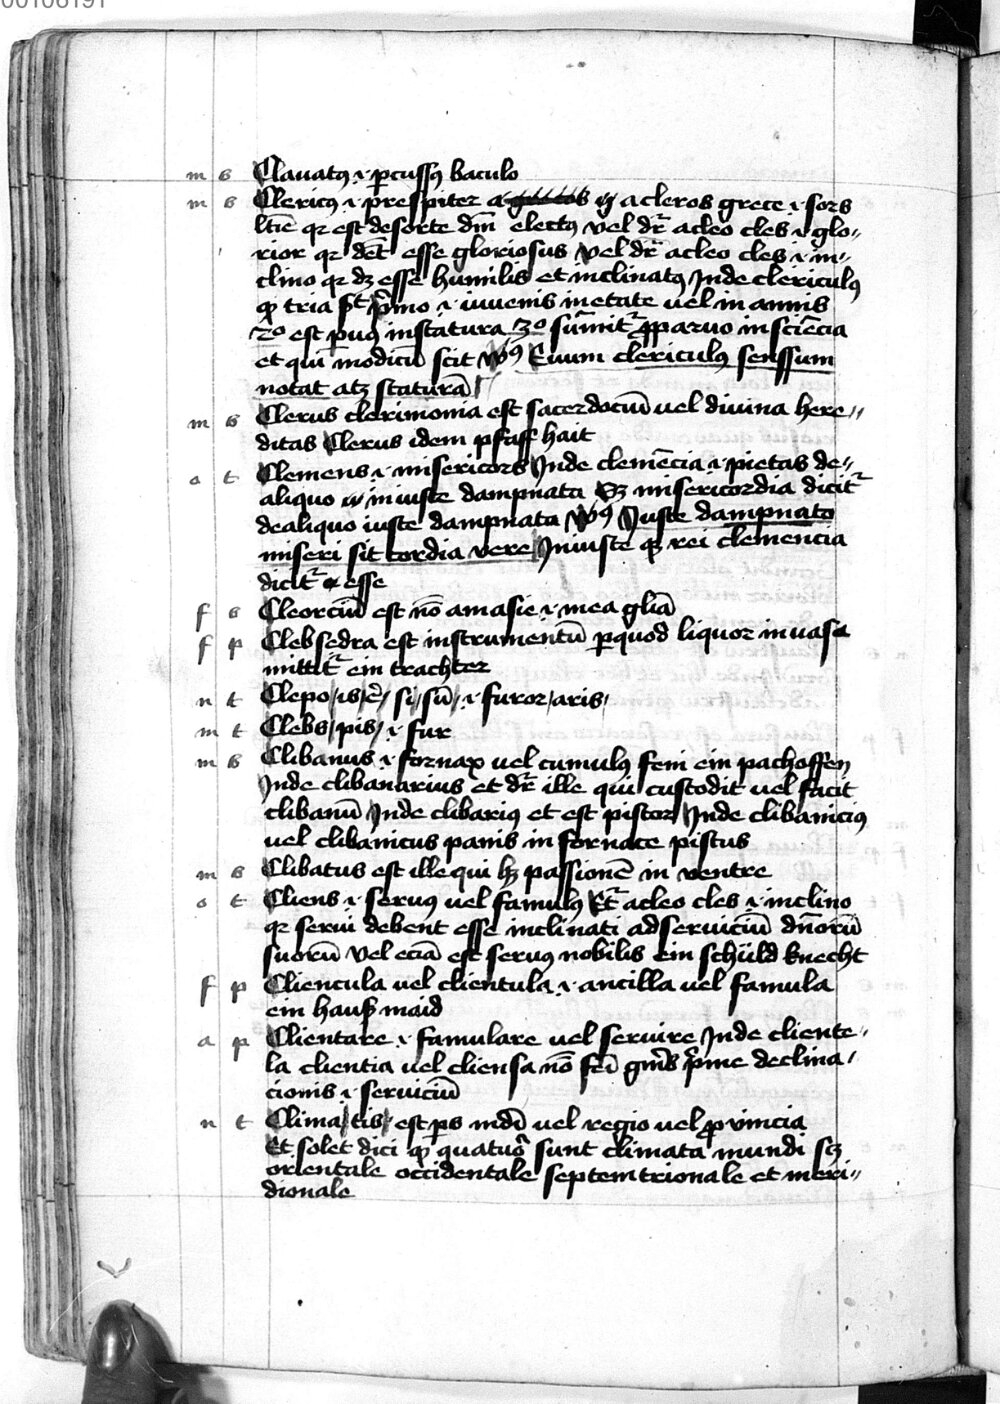 m s Clauatꝰ .i. ꝑcussꝰ baculo
m s Clericꝰ .i. prespiter a cleros grece .i. sors
ltīe qr est de sorte dm̄ electꝰ vel dr̄ a cleo cles .i. glo-
rior qr dēt esse gloriosus vel dr̄ a cleo cles .i. in-
clino qr dꝫ esse humilis et inclinatꝰ Inde clericulꝰ
ꝙ tria .i. iuuenis in etate vel in annis
2º est ꝑuus in statura 3º sūmit̄ ꝓ paruo in sciēcia
et qui modicū scit vꝰ Euum clericulꝰ senssum
notat atꝫ staturā
m s Clerus clerimonia est sacerdociū vel diuina here-
ditas Clerus idem pfaffhait
o t Clemens .i. misericors Inde clemēcia .i. pietas de-
aliquo iniuste dampnata Sꝫ misericordia dicit̄
de aliquo iuste dampnata vꝰ Iuste dampnato
miseri sit cordia vere Iniuste ꝙ rei clemencia
dicit̄ esse
f s Cleorciū est nō amasie .i. mea gliā
f p Clebsedra est instrumentū ꝑ quod liquor in vasa
mittit̄ ein trachter
n t Clepo/is/ē/ si/sū/ .i. furor/aris/
m t Clebs/pis/ .i. fur
m s Clibanus .i. fornax vel cumulꝰ feni ein pachoffen
Inde clibanarius et dr̄ ille qui custodit vel facit
clibanū Inde clibariꝰ et est pistor Inde clibaniciꝰ
vel clibanicus panis in fornace pistus
m s Clibatus est ille qui hꝫ passionē in ventre
o t Cliens .i. seruꝰ vel famulꝰ Et̄ a cleo cles .i. inclino
qr serui debent esse inclinati ad seruiciū dn̄orū
suorū Vel eciā est seruꝰ nobilis ein schüld knecht
f p Cliencula vel clientula .i. ancilla vel famula
ein hauß maid
a p Clientare .i. famulare vel seruire Inde cliente-
la clientia vel cliensa nō fēi gn̄is p̄me declina-
cionis .i. seruiciū
n t Clima/tis/ est ꝑs mdī vel regio vel ꝓuincia
Et solet dici ꝙ quatuor̄ sunt climata mundi sꝫ
orientale occidentale septemtrionale et meri-
dionale